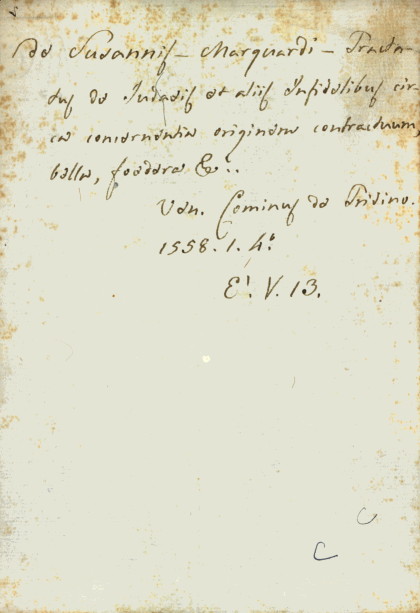 De Susannis – Marquardi – Tracta-
tus de Judaeis et aliis Infidelibus cir-
ca concernentia originem contractuum,
bella, foedera &..
Ven. Cominus de Tridino.
1558. 1. 4º
E'. V. 13.
C